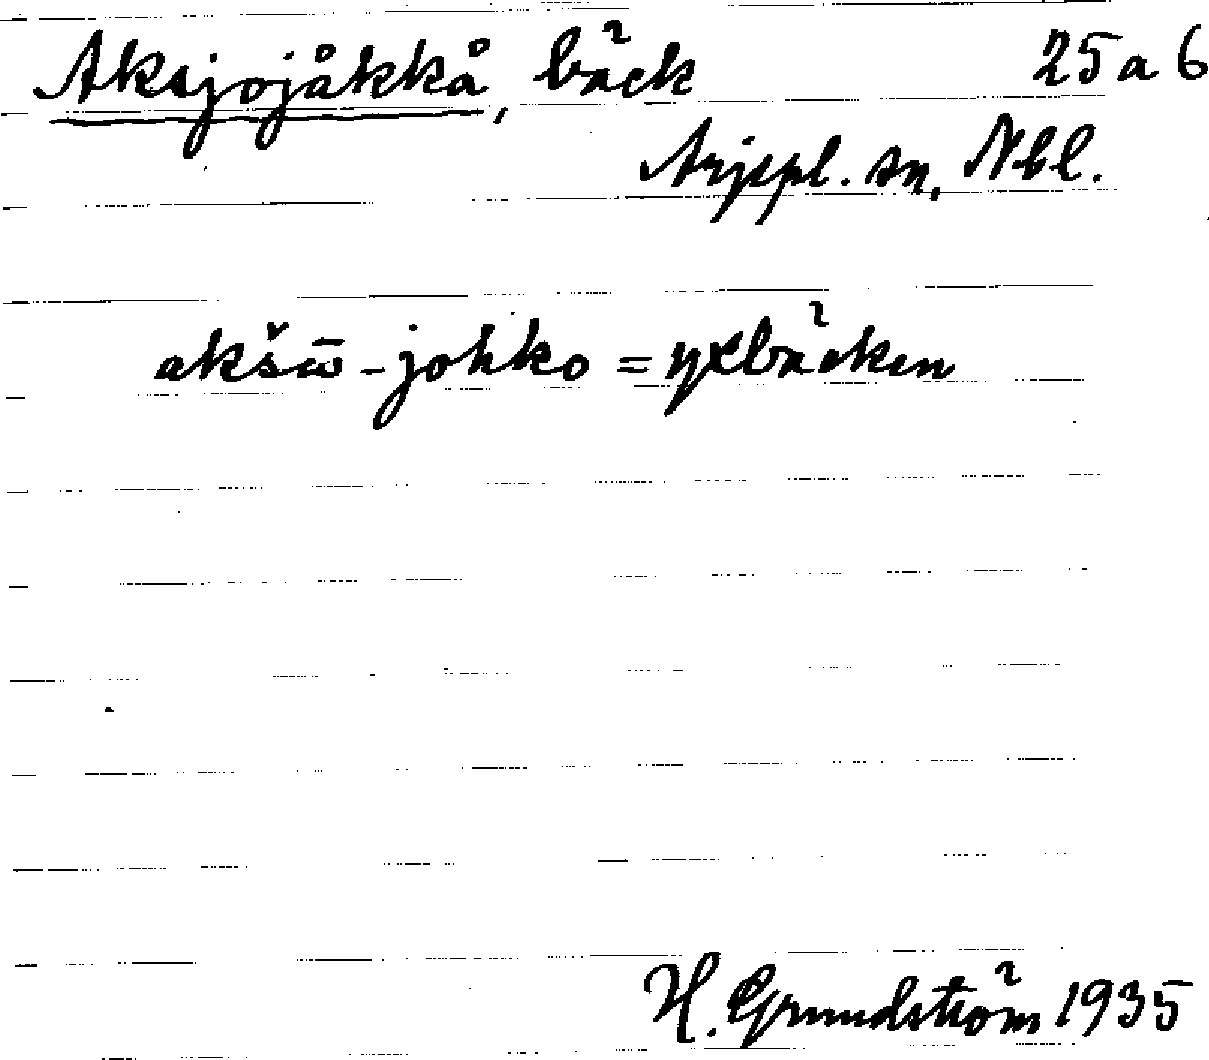 Aksjojåkkå, bäck 25 a 6
Arjepl. sn, Nbl.
akšω̄-johko = yxbäcken
H. Grundström 1935